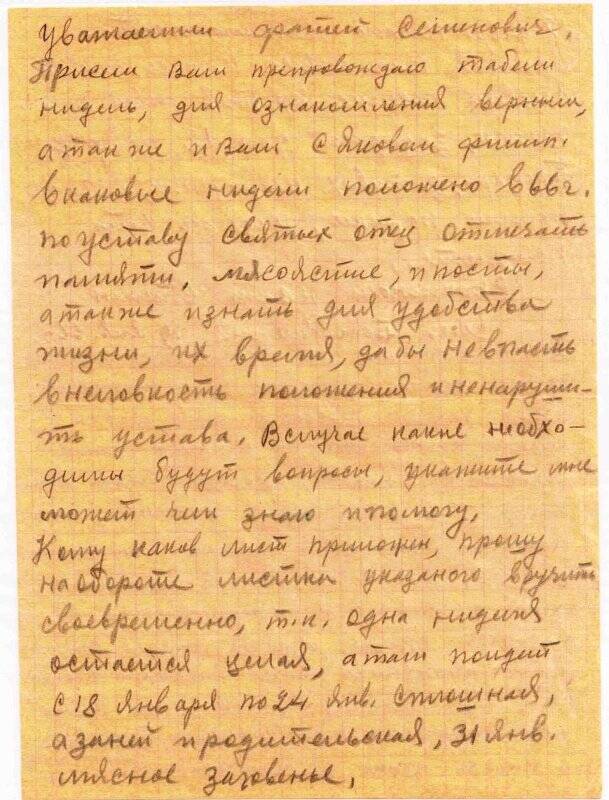 уважаемыи фатей Семенович.
Присем Вам препровождаю табели
нидель, для ознакомления верным,
а также и Вам с яковам филип.
в каковые нидели положено в 66 г.
по уставу святых отец отмечать
памяти, мясоястие, и посты,
а также и знать для удобства
жизни, их время, да бы невпасть
в неловкость положения и ненаруши-
ть устава. В случае какие необхо-
димы будут вопросы, укажите мне
может чем знаю и помогу,
Кому каков лист приложен, прошу
на обороте листка указаного вручить
своевременно, т.к. одна ниделя
остается целая, а там поидет
с 18 января по 24 янв. сплошная,
а заней и родительская, 31 янв.
мясное заговенье,